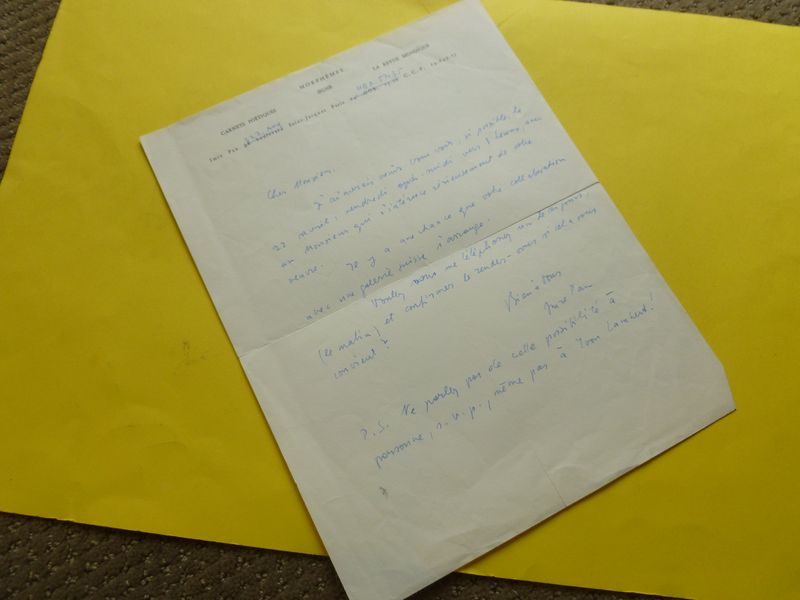 MORPHÈMES
CARNETS POÉTIQUES LA REVUE MUSICALE
Saint-Jacques Paris C.C.P.
Cher Monsieur,
J'aimerais venir vous voir, si possible le
22 mars, vendredi après-midi vers 3 heures, avec
un Monsieur qui s'intéresse sérieusement de votre
oeuvre. Il y a une chance que votre collaboration
avec une galerie suisse s'arrange.
Voulez vous me téléphoner un de ces jours,
(le matin) et confirmer le rendez-vous s'il vous
convient?
Bien à vous
P.S. Ne parlez pas de cette possibilité à
personne, s.v.p., même pas à Yvon Lambert!